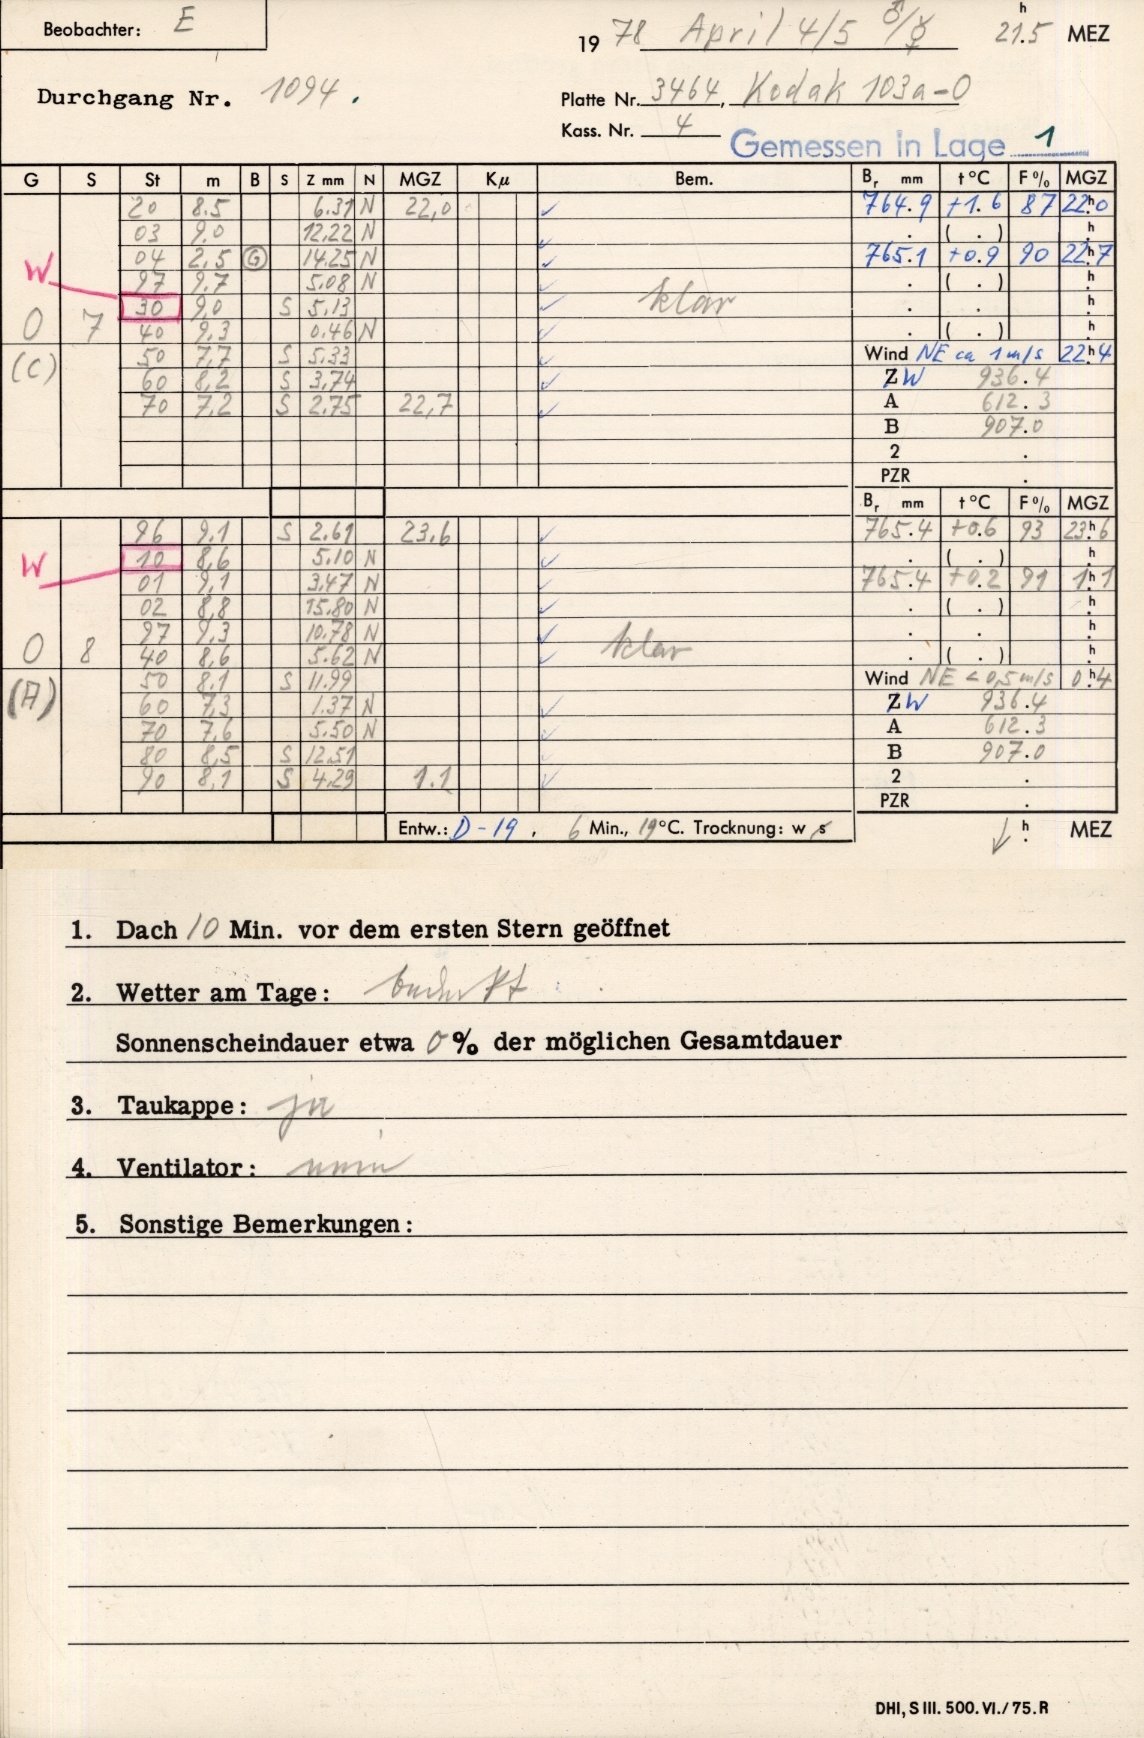 Beobachter: E
19 78 April 4/5 ♂/☿ 21.5 h MEZ
Durchgang Nr. 1094.
Platte Nr. 3464, Kodak 103a-O
Kass. Nr. 4
Gemessen in Lage 1
G S St m B S Z mm N MGZ Kμ Bem. Br mm t °C F % MGZ
20 8.5 6.31 N 22,0 ✓ 764.9 +1.6 87 22h0
03 9.0 12.22 N ✓ . ( . ) h
W 04 2.5 G 14.25 N ✓ 765.1 +0.9 90 22h7
97 9.7 5.08 N ✓ . ( . ) h
30 9,0 S 5.13 ✓ klar . . h
0 7 40 9.3 0.46 N ✓ . ( . ) h
(C) 50 7,7 S 5.33 ✓ Wind NE ca 1 m/s 22h4
60 8,2 S 3,74 ✓ ZW 936.4
70 7,2 S 2.75 22,7 ✓ A 612.3
B 907.0
2 .
PZR .
Br mm t °C F % MGZ
96 9,1 S 2.61 23,6 ✓ 765.4 +0.6 93 23h6
W 10 8,6 5.10 N ✓ . ( . ) h
01 9,1 3.47 N ✓ 765.4 +0.2 91 1h1
02 8,8 15.80 N ✓ . ( . ) h
97 9.3 10.78 N ✓ klar . . h
0 8 40 8,6 5.62 N ✓ . ( . ) h
(A) 50 8,1 S 11.99 Wind NE < 0,5 m/s 0h4
60 7,3 1.37 N ✓ ZW 936.4
70 7,6 5.50 N ✓ A 612.3
80 8,5 S 12.51 ✓ B 907.0
90 8,1 S 4.29 1.1 ✓ 2 .
PZR .
Entw.: D-19, 6 Min., 19°C. Trocknung: w s h MEZ
1. Dach 10 Min. vor dem ersten Stern geöffnet
2. Wetter am Tage: bedeckt
Sonnenscheindauer etwa 0% der möglichen Gesamtdauer
3. Taukappe: ja
4. Ventilator: nein
5. Sonstige Bemerkungen:
DHI, S III. 500. VI./75. R